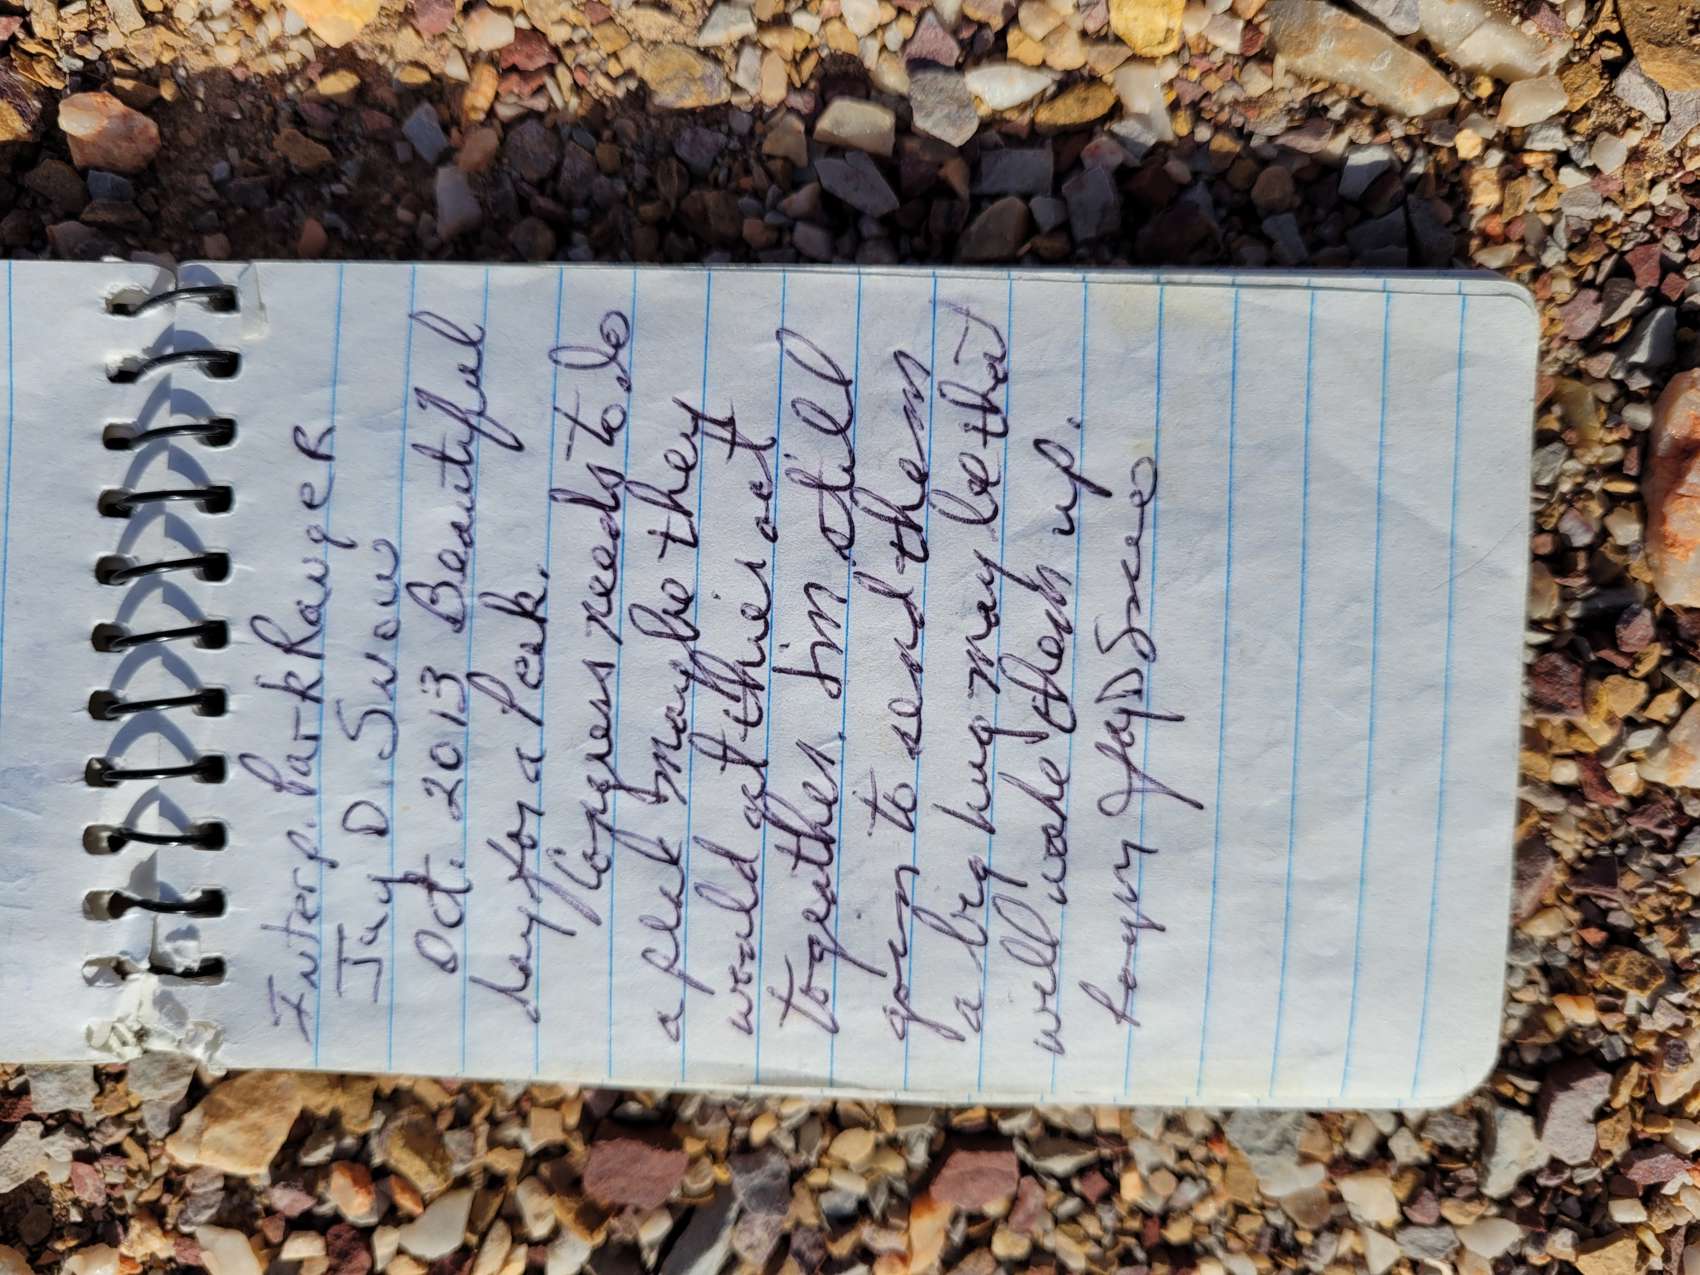 Interp. Park Ranger
Jay D. Snow
Oct. 2013 Beautiful
day for a Peak.
Congress needs to do
a peak maybe they
would get their act
togeather. Im still
goin to send them
a big hug may be that
will wake them up.
Jay D Snow